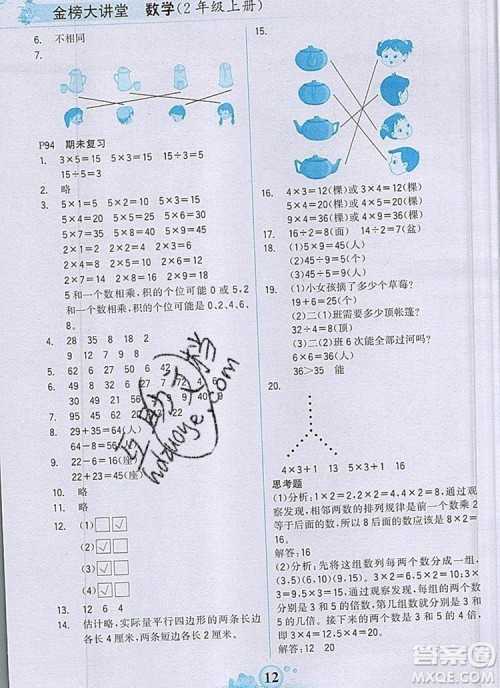 金榜大讲堂 数学(2年级上册)
6. 不相同
7.
P94 期末复习
1. 3×5=15 5×3=15 15÷3=5
15÷5=3
2. 略
3. 5×1=5 5×2=10 5×3=15
5×4=20 5×5=25 5×6=30
5×7=35 5×8=40 5×9=45
2×1=2 2×2=4 2×3=6
2×4=8 2×5=10 2×6=12
2×7=14 2×8=16 2×9=18
5和一个数相乘,积的个位可能是0或5,2
和一个数相乘,积的个位可能是0,2,4,6,
8。
4. 18 23
87 64
7. 95 45 62
8. 29+35=64(人)
64-8=56(人)
9. 22-6=16(座)
22+23=45(座)
10. 略
11. 略
12. (1)□☑
(2)☑□
(3)□☑
(4)☑□
13. 12 6 4
14. 估计略,实际量平行四边形的两条长边
各长4厘米,两条短边各长2厘米。
15.
16. 4×3=12(棵)或3×4=12(棵)
9×4=36(棵)或4×9=36(棵)
17. 16÷2=8(面) 14÷2=7(盆)
18. (1)5×9=45(人)
(2)45÷9=5(人)
(3)45÷5=9(人)
19. (1)小女孩摘了多少个草莓?
19+6=25(个)
(2)二(1)班需要多少顶帐篷?
32÷4=8(顶)
(3)二(2)班6次能全部过河吗?
6×6=36(人)
36>35 能
20.
4×3+1 13 5×3+1 16
思考题
(1)分析:1×2=2,2×2=4,4×2=8,通过
观察发现,相邻两数的排列规律是前一个数乘
2等于后一个数,所以8后面的数应该是8×2=
16。
解答:16
(2)分析:先将这组数列每两个数分成一组,
(3,5)(6,10)(9,15)。通过观察发现:3×2=
6,5×2=10,3×3=9,5×3=15,每组的两个数
分别是3和5的倍数,第几组数就分别是3和
5的几倍。接下来的两个数分别是12和20。
解答:12 20
12
互助文档
hdzuoye.com
答案圈
MXQE.COM